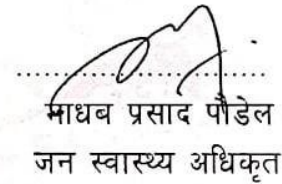 माधब प्रसाद पौडेल
जन स्वास्थ्य अधिकृत